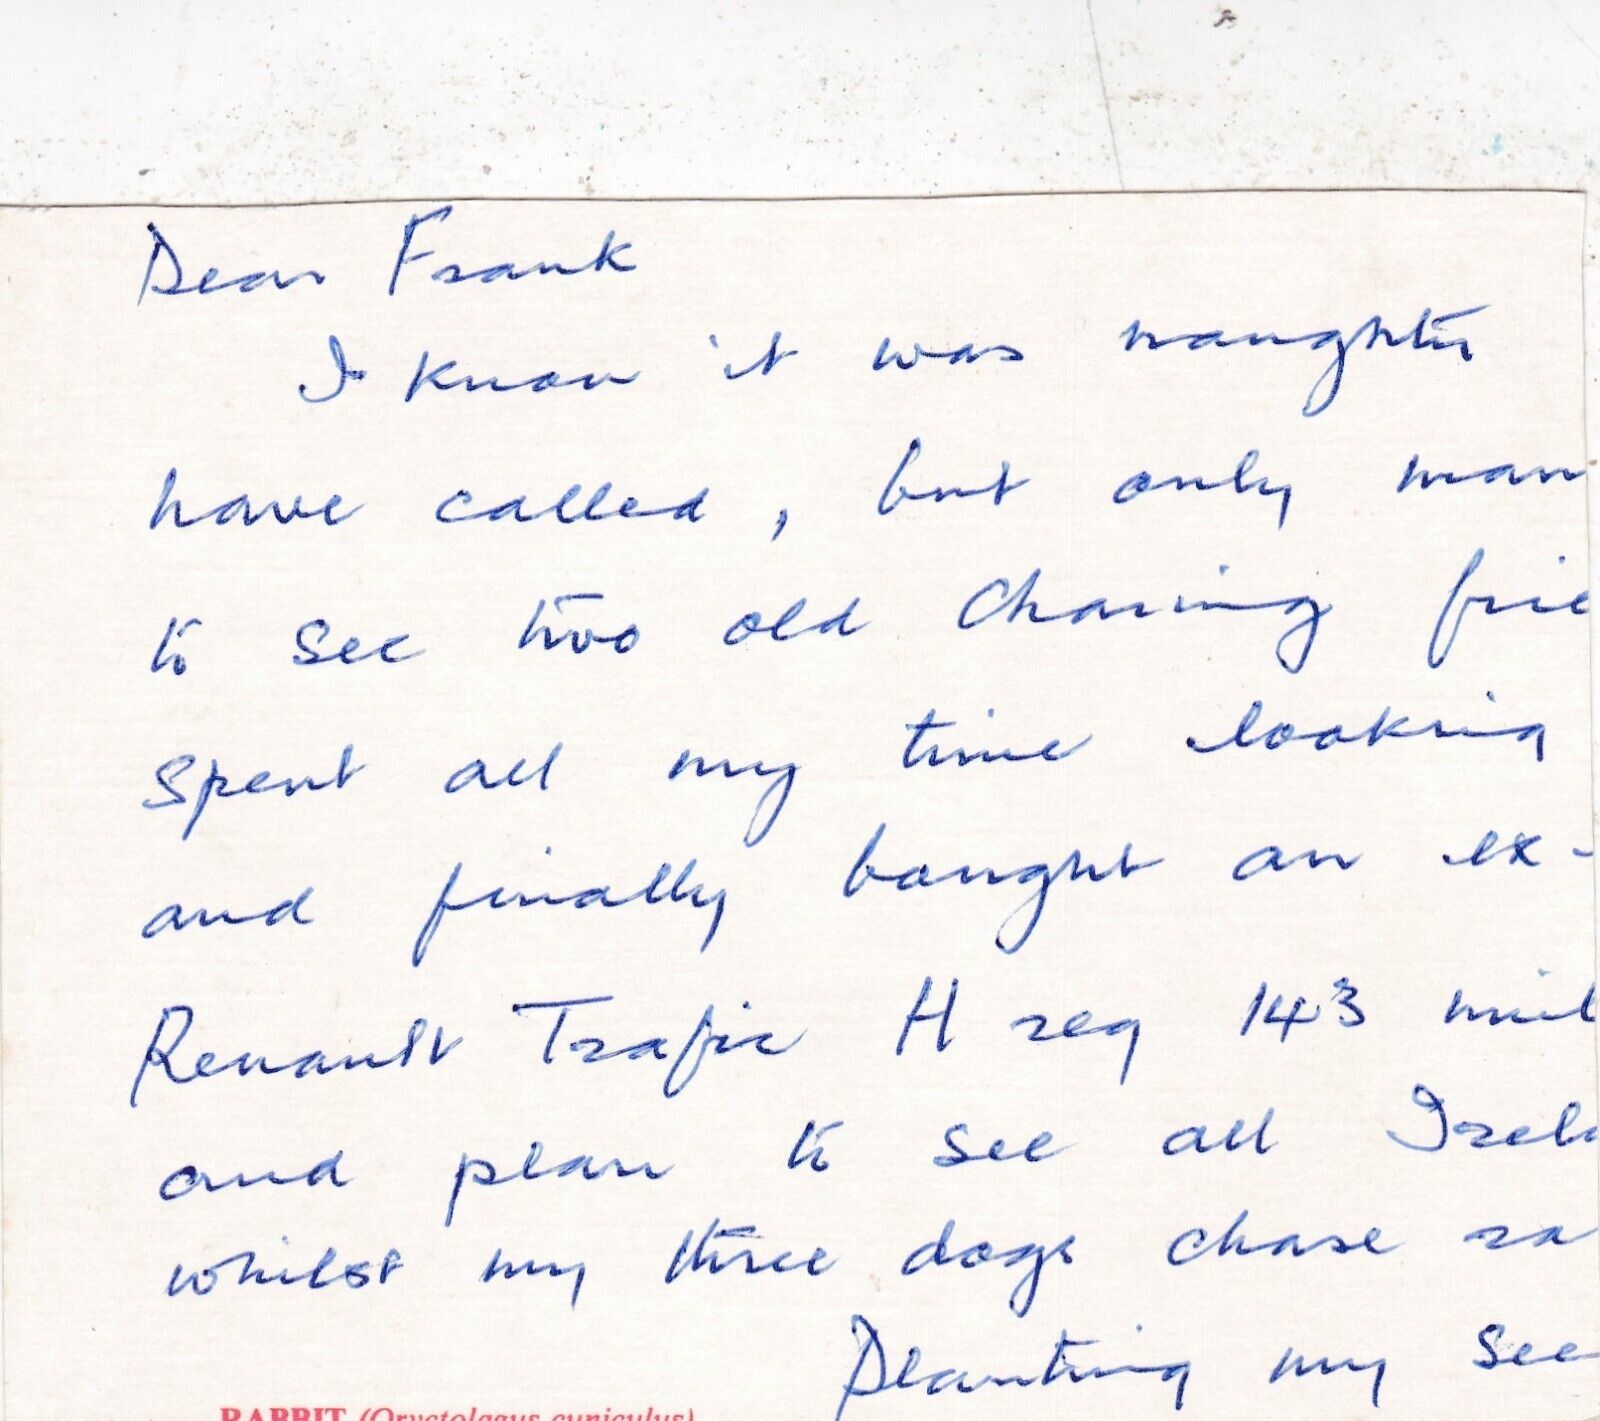 Dear Frank
I know it was naughty
have called, but only man
to see two old Charing frie
spent all my time looking
and finally bought an ex-
Renault Trafic H reg 143 mil
and plan to see all Irela
whilst my three dogs chase ra
Planting my see
RABBIT (Oryctolagus cuniculus)